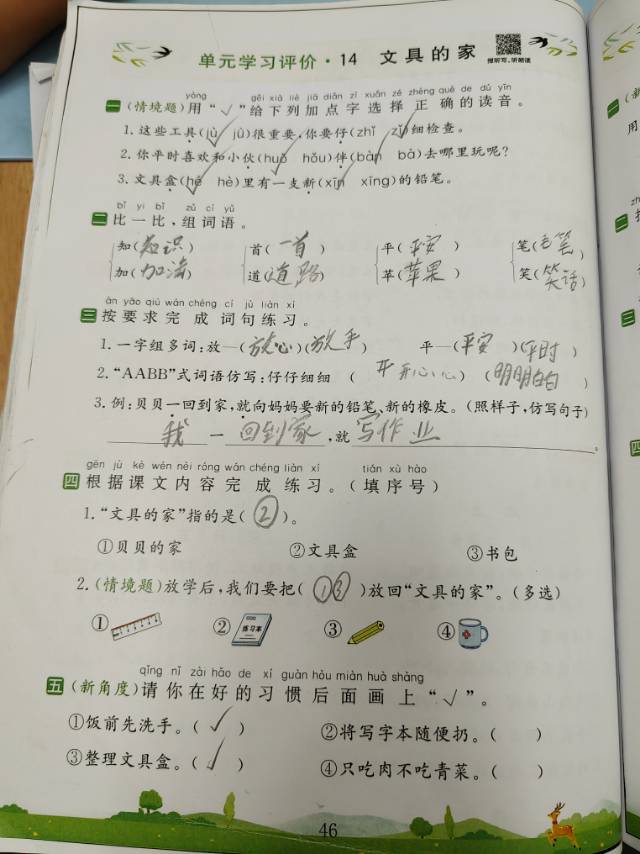 单元学习评价·14 文具的家
报听写、听朗读
yòng gěi xià liè jiā diǎn zì xuǎn zé zhèng què de dú yīn
一 (情境题)用“√”给下列加点字选择正确的读音。
1. 这些工具(jù jǜ)很重要,你要仔(zhǐ zǐ)细检查。
2. 你平时喜欢和小伙(huǒ hǒu)伴(bàn bà)去哪里玩呢?
3. 文具盒(hé hè)里有一支新(xīn xīng)的铅笔。
bǐ yi bǐ zǔ cí yǔ
二 比一比,组词语。
知(知识) 首(一首) 平(平安) 笔(毛笔)
加(加法) 道(道路) 苹(苹果) 笑(笑话)
àn yāo qiú wán chéng cí jù liàn xí
三 按要求完成词句练习。
1. 一字组多词:放—(放心)(放手) 平—(平安)(平时)
2. “AABB”式词语仿写:仔仔细细 (开开心心) (明明白白)
3. 例:贝贝一回到家,就向妈妈要新的铅笔、新的橡皮。(照样子,仿写句子)
我一回到家,就写作业。
gēn jù kè wén nèi róng wán chéng liàn xí tián xù hào
四 根据课文内容完成练习。(填序号)
1. “文具的家”指的是(②)。
①贝贝的家 ②文具盒 ③书包
2. (情境题)放学后,我们要把(①③)放回“文具的家”。(多选)
① ② 练习本 ③ ④
qǐng nǐ zài hǎo de xí guàn hòu miàn huà shàng
五 (新角度)请你在好的习惯后面画上“√”。
①饭前先洗手。(√) ②将写字本随便扔。( )
③整理文具盒。(√) ④只吃肉不吃青菜。( )
46